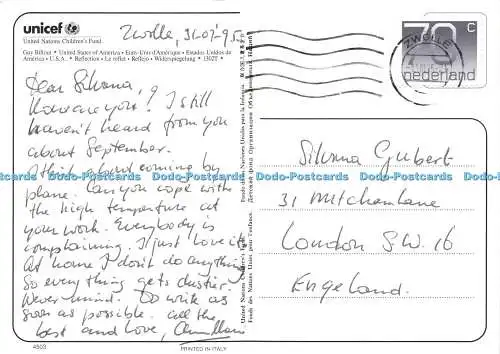 unicef
United Nations Children's Fund
Guy Billout • United States of America • Etats-Unis d'Amérique • Estados Unidos de
América • U.S.A. • Reflection • Le reflet • Reflejo • Widerspiegelung • 1302T •
Zwolle, 31-07-'95
ZWOLLE
70 c
nederland
Dear Silvana,
How are you? I still
haven't heard from you
about September.
I think about coming by
plane. Can you cope with
the high temperature at
your work. Everybody is
complaining. I just love it.
At home I don't do anything
So everything gets dustier.
Never mind. Do write as
soon as possible. All the
best and love,
Silvana Gubert
31 Mitcham Lane
London S.W. 16
Engeland.
United Nations Children's Fund
Fonds des Nations Unies pour l'Enfance
Fondo de las Naciones Unidas para la Infancia
Детский фонд Организации Объединенных Наций
Dodo-Postcards Dodo-Postcards Dodo-Postcards Dodo-Postcards Dodo-Postcards
4503
PRINTED IN ITALY